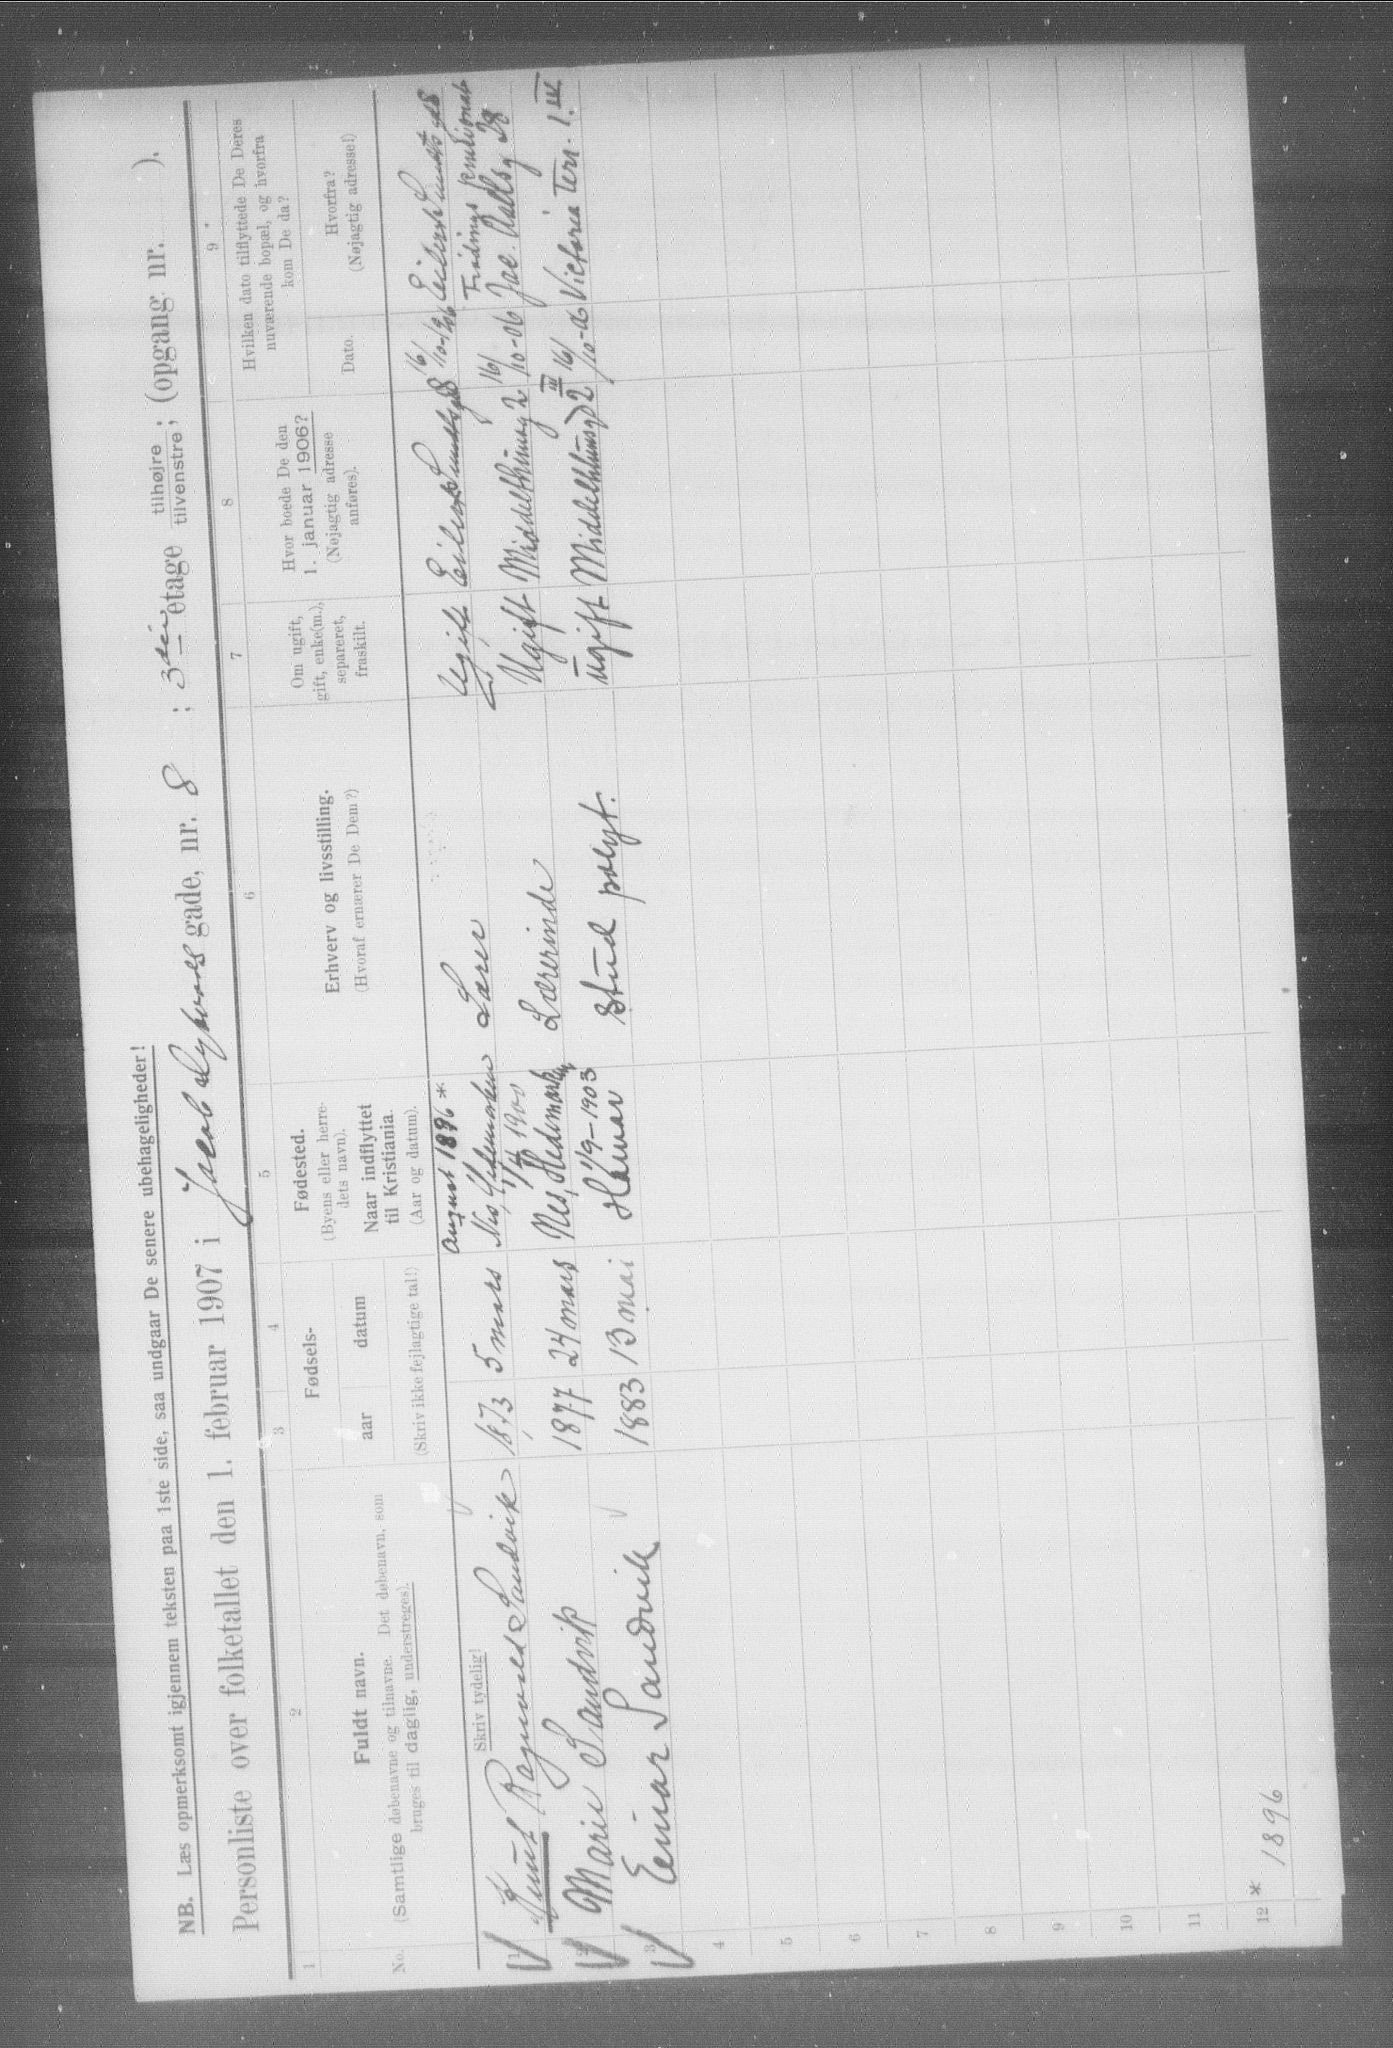 NB. Læs opmerksomt igjennem teksten paa 1ste side, saa undgaar De senere ubehageligheder!
Personliste over folketallet den 1. februar 1907 i Jacob Dybwads gade, nr. 8 ; 3die etage tilhøjre ; tilvenstre ; (opgang nr. ).
1 2 3 4 5 6 7 8 9
No.
Fuldt navn.
(Samtlige døbenavne og tilnavne. Det døbenavn, som
bruges til daglig, understreges).
Fødsels-
aar datum
(Skriv ikke fejlagtige tal!)
Fødested.
(Byens eller herre-
dets navn).
Naar indflyttet
til Kristiania.
(Aar og datum).
Erhverv og livsstilling.
(Hvoraf ernærer De Dem?)
Om ugift,
gift, enke(m.),
separeret,
fraskilt.
Hvor boede De den
1. januar 1906?
(Nøjagtig adresse
anføres).
Hvilken dato tilflyttede De Deres
nuværende bopæl, og hvorfra
kom De da?
Dato.
Hvorfra?
(Nøjagtig adresse!)
Skriv tydelig!
august 1896 *
1 Knut Ragnvald Sandvik 1873 5 mars Nes, Hedemarken Ugift Eilert Sundtsgd 8 16/10-06 Eilert Sundtsgd 8
1/4 1900
2 Marie Sandvik 1877 24 mars Nes, Hedemarken Lærerinde Ugift Middelthunsg 2 16/10-06 Jac. Aallsg 28
11/9-1903
3 Einar Sandvik 1883 13 mai Hamar stud polyt. ugift Middelthunsgd 2 III 16/10-06 Victoria Terr. 1. IV
4
5
6
7
8
9
10
11
12
* 1896